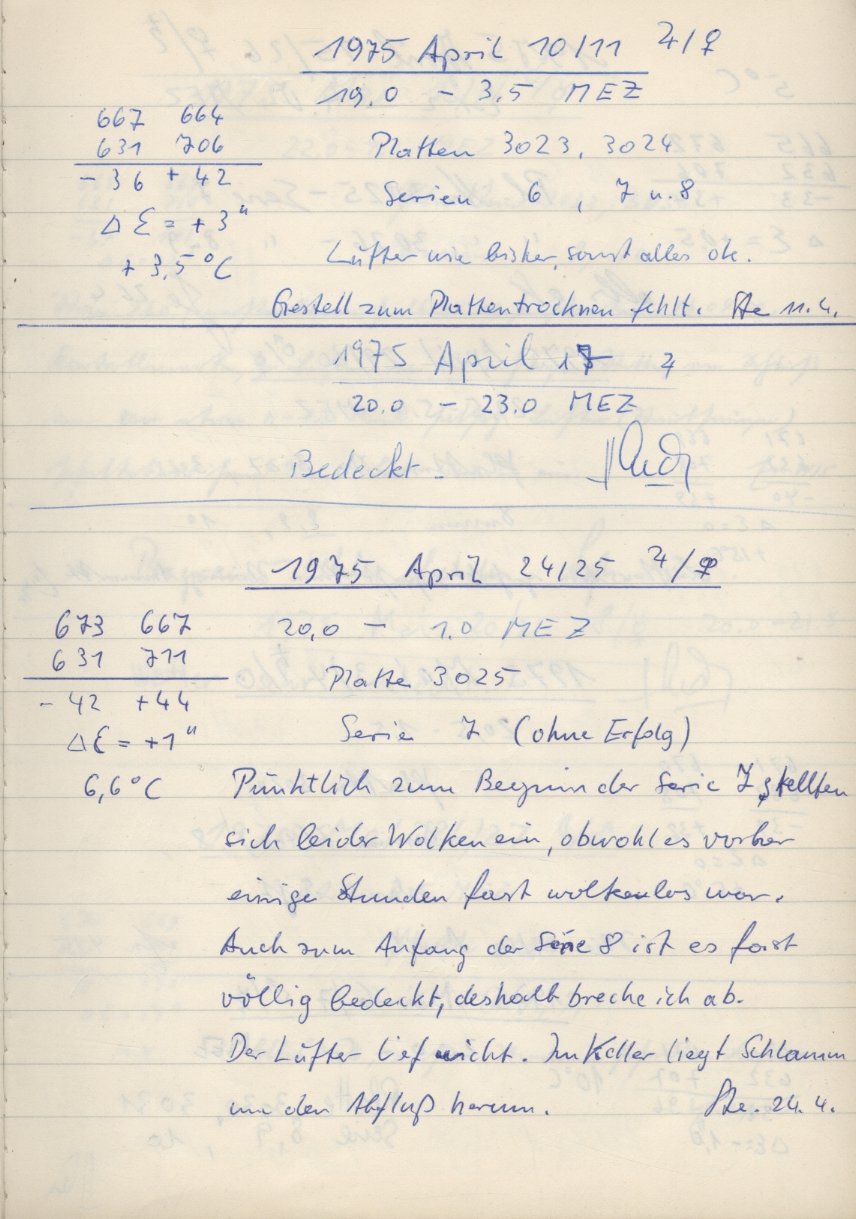 1975 April 10/11 ♃/♀
19,0 – 3,5 MEZ
667 664
631 706
- 36 + 42
Δ ℰ = + 3"
+ 3,5°C
Platten 3023, 3024
Serien 6, 7 u. 8
Lüfter wie bisher, sonst alles ok.
Gestell zum Plattentrocknen fehlt. Ste 11.4.
1975 April 17 ♃
20.0 – 23.0 MEZ
Bedeckt.
1975 April 24/25 ♃/♀
673 667
631 711
- 42 +44
Δℰ = +1"
6,6°C
20,0 – 1,0 MEZ
Platte 3025
Serie 7 (ohne Erfolg)
Pünktlich zum Beginn der Serie 7 stellten
sich leider Wolken ein, obwohl es vorher
einige Stunden fast wolkenlos war.
Auch zum Anfang der Serie 8 ist es fast
völlig bedeckt, deshalb breche ich ab.
Der Lüfter lief nicht. Im Keller liegt Schlamm
um den Abfluß herum. Ste. 24.4.